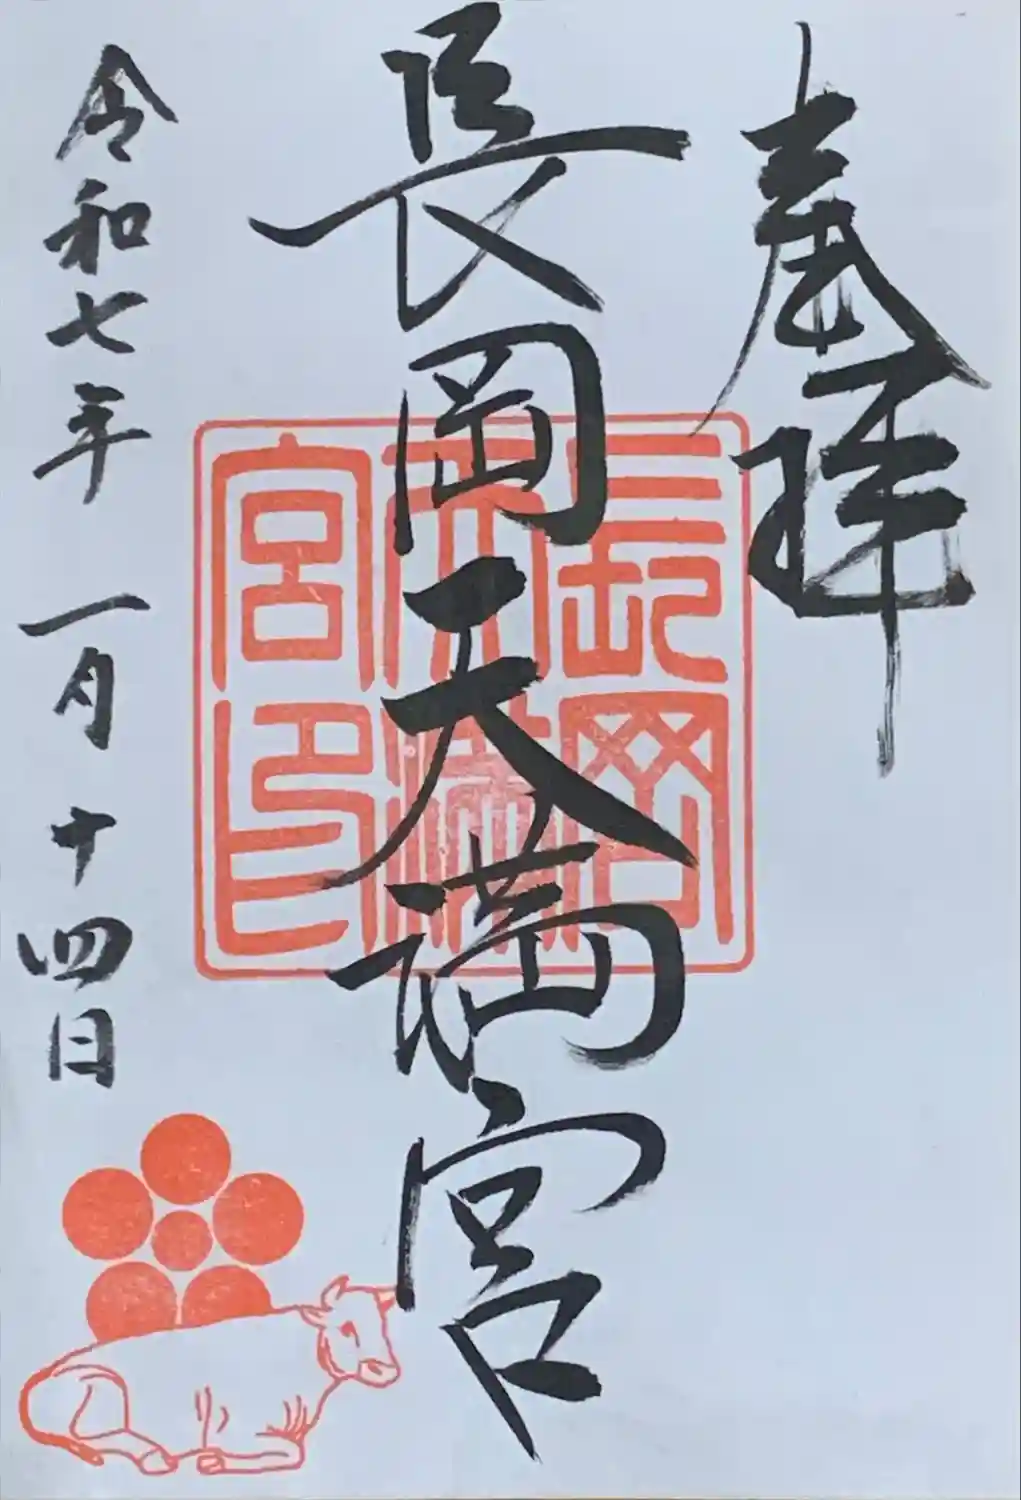 奉拝
長岡天満宮
長岡天満宮印
令和七年一月十四日